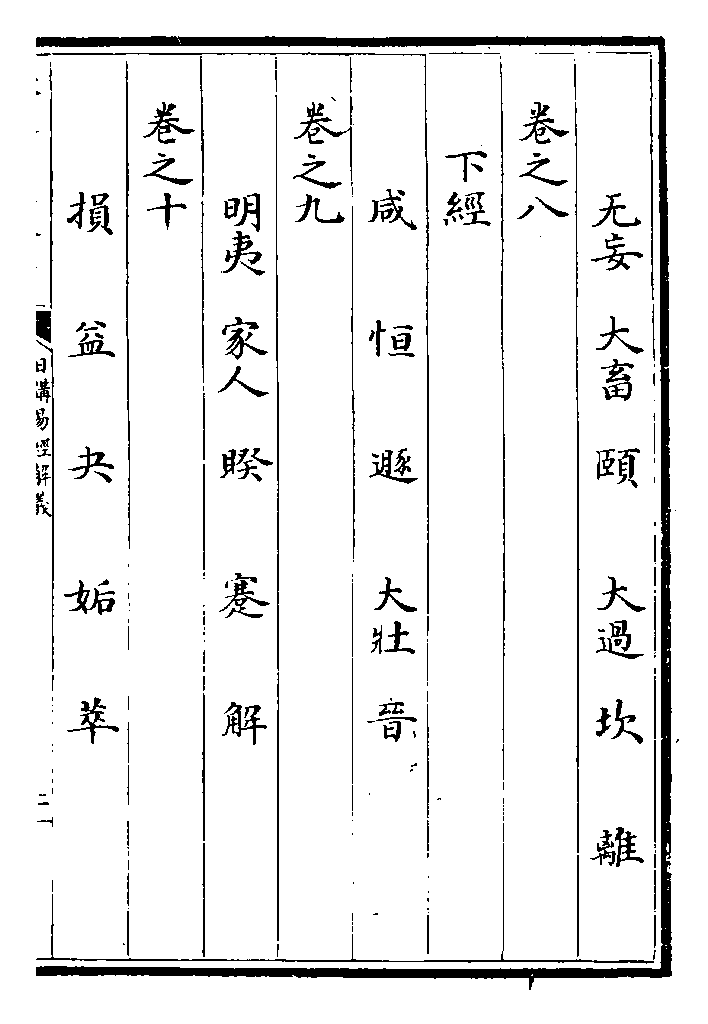 无妄 大畜 頤 大過 坎 離
卷之八
下經
咸 恒 遯 大壯 晉
卷之九
明夷 家人 睽 蹇 解
卷之十
損 益 夬 姤 萃
日講易經解義
二